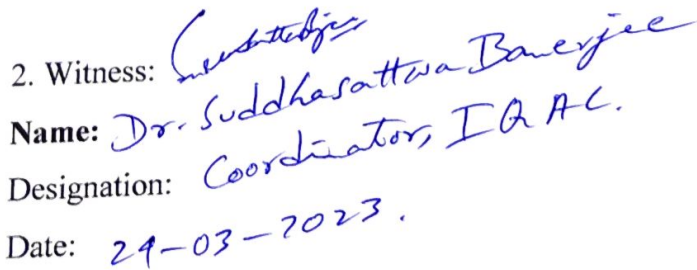 2. Witness:
Name: Dr. Suddhasattwa Banerjee
Designation: Coordinator, IQAC.
Date: 29-03-2023.